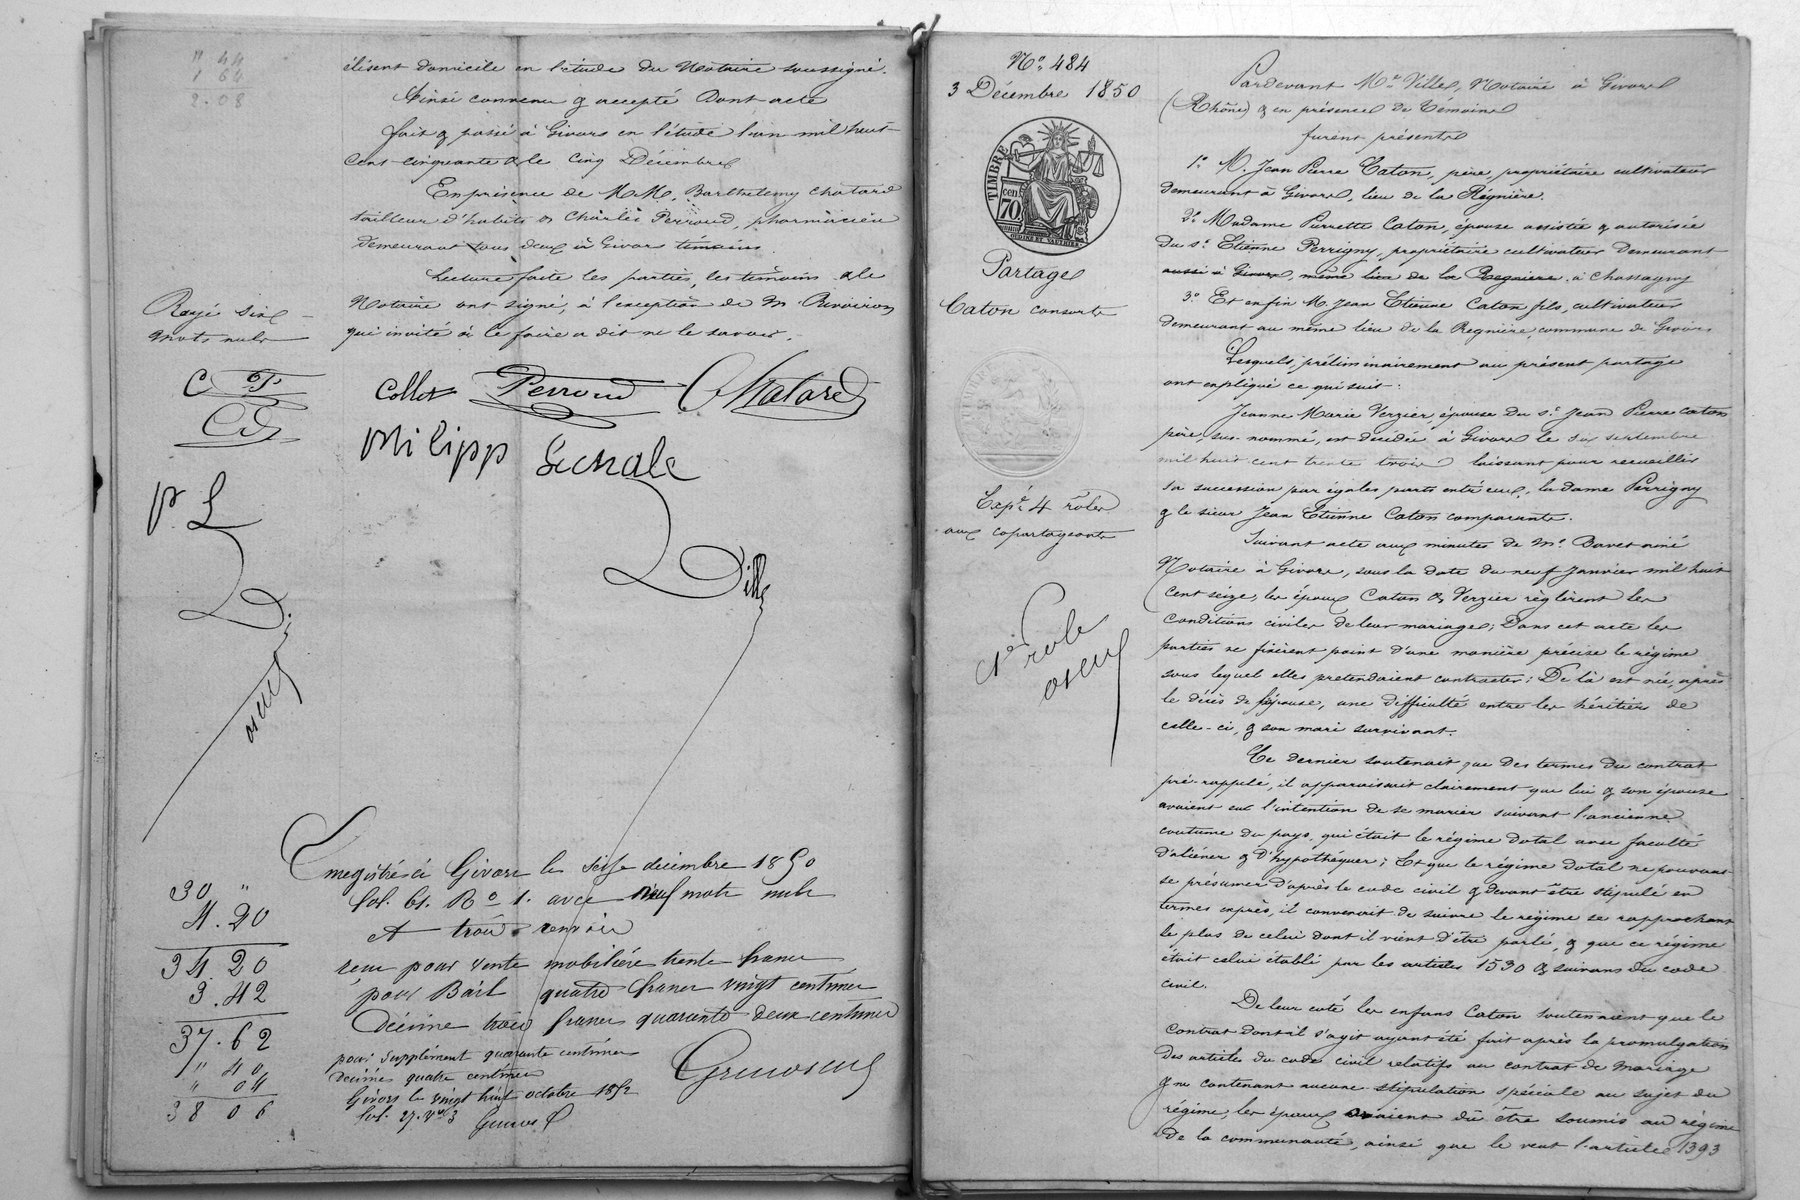 11 44
1 64
2.08
élisent domicile en l'étude du Notaire soussigné.
Ainsi convenu & accepté Dont acte
fait & passé à Givors en l'étude l'an mil huit
cent cinquante & le cinq Décembre
En présence de M.M. Barthelemy Chatard
tailleur d'habits & Charles Perroud, pharmacien
demeurant tous deux à Givors témoins
Lecture faite les parties, les témoins & le
Notaire ont signé, à l'exception de M.
qui invité à le faire a dit ne le savoir.
Rayé six
mots nuls
C P
Collet Perroud Chatard
Philipp Sechale
P. L
Ville
Enregistré à Givors le seize décembre 1850
fol. 61. Ro 1. avec neuf mots nuls
et trois renvois
reçu pour vente mobilière trente francs
pour Bail quatre francs vingt centimes
Décime trois francs quarante deux centimes
pour supplément quarante centimes
décime quatre centimes
Givors le vingt huit octobre 1852
fol. 27. Vo 3
30 "
4.20
34.20
3.42
37.62
" 40
" 04
38 06
No. 484
3 Décembre 1850
TIMBRE
70 cen.
Partage
Caton consorts
Expé. 4 rôles
aux copartageants
1er role
Pardevant Me Ville, Notaire à Givors
(Rhône) & en présence de Témoins
furent présents
1o. M. Jean Pierre Caton, père, propriétaire cultivateur
demeurant à Givors, lieu de la Régnière.
2o. Madame Pierrette Caton, épouse assistée & autorisée
du sr. Etienne Perrigny, propriétaire cultivateur demeurant
aussi à Givors, même lieu de la Regnière. à Chassagny
3o. Et enfin M. Jean Etienne Caton fils, cultivateur
demeurant au même lieu de la Regnière, commune de Givors
Lesquels, préliminairement au présent partage
ont expliqué ce qui suit:
Jeanne Marie Verzier, épouse du sr. Jean Pierre Caton
père, sus-nommé, est décédée à Givors le six septembre
mil huit cent trente trois laissant pour recueillir
sa succession par égales parts entr'eux, la dame Perrigny
& le sieur Jean Etienne Caton comparants.
Suivant acte aux minutes de Me. Bavet ainé
Notaire à Givors, sous la date du neuf Janvier mil huit
cent seize, les époux Caton & Verzier règlèrent les
conditions civiles de leur mariage; Dans cet acte les
parties ne fixèrent point d'une manière précise le régime
sous lequel elles prétendaient contracter; De là est née, après
le décès de l'épouse, une difficulté entre les héritiers de
celle-ci, & son mari survivant.
Ce dernier soutenait que des termes du contrat
pré-rappelé, il apparaissait clairement que lui & son épouse
avaient eu l'intention de se marier suivant l'ancienne
coutume du pays, qui était le régime dotal avec faculté
d'aliéner & d'hypothéquer; Et que le régime dotal ne pouvant
se présumer d'après le code civil & devant être stipulé en
termes exprès, il convenait de suivre le régime se rapprochant
le plus de celui dont il vient d'être parlé, & que ce régime
était celui établi par les articles 1530 & suivans du code
civil.
De leur coté les enfans Caton soutenaient que le
contrat dont il s'agit ayant été fait après la promulgation
des articles du code civil relatifs au contrat de mariage
& ne contenant aucune stipulation spéciale au sujet du
régime, les époux avaient dû être soumis au régime
de la communauté, ainsi que le veut l'article 1393